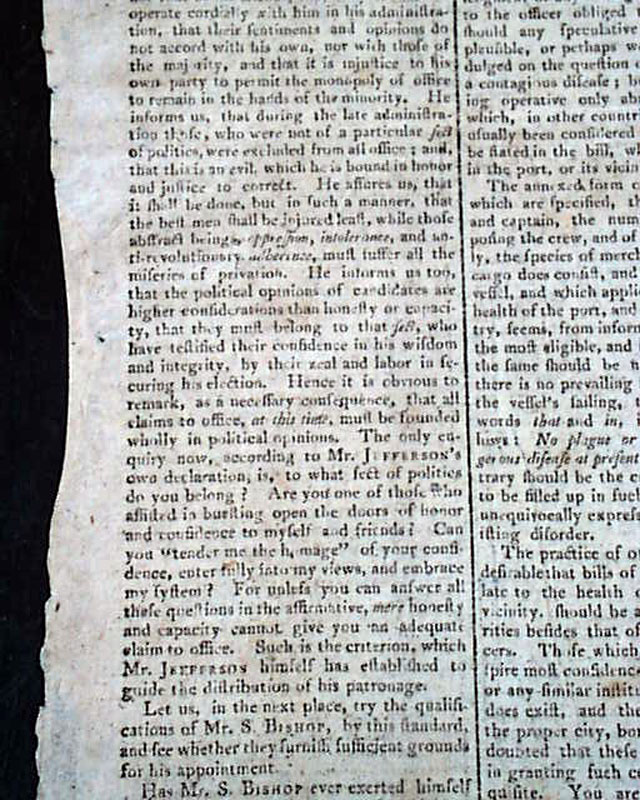 operate cordially with him in his administra-
tion, that their sentiments and opinions do
not accord with his own, nor with those of
the majority, and that it is injustice to his
own party to permit the monopoly of office
to remain in the hands of the minority. He
informs us, that during the late administra-
tion those, who were not of a particular ſect
of politics, were excluded from all office; and,
that this is an evil, which he is bound in honor
and juſtice to correct. He aſſures us, that
it ſhall be done, but in ſuch a manner, that
the beſt men ſhall be injured leaſt, while thoſe
abſtract beings, oppreſſion, intolerance, and an-
ti-revolutionary adherence, muſt ſuffer all the
miſeries of privation. He informs us too,
that the political opinions of candidates are
higher conſiderations than honeſty or capaci-
ty, that they muſt belong to that ſect, who
have teſtified their confidence in his wiſdom
and integrity, by their zeal and labor in ſe-
curing his election. Hence it is obvious to
remark, as a neceſſary conſequence, that all
claims to office, at this time, muſt be founded
wholly in political opinions. The only en-
quiry now, according to Mr. JEFFERSON's
own declaration, is, to what ſect of politics
do you belong? Are you one of thoſe who
aſſiſted in burſting open the doors of honor
and confidence to myſelf and friends? Can
you "tender me the homage" of your confi-
dence, enter fully into my views, and embrace
my ſyſtem? For unleſs you can anſwer all
theſe queſtions in the affirmative, mere honeſty
and capacity cannot give you an adequate
claim to office. Such is the criterion, which
Mr. JEFFERSON himſelf has eſtabliſhed to
guide the diſtribution of his patronage.
Let us, in the next place, try the qualifi-
cations of Mr. S. BISHOP, by this ſtandard,
and ſee whether they furniſh ſufficient grounds
for his appointment.
Has Mr. S. BISHOP ever exerted himſelf
to the officer obliged
ſhould any ſpeculative
plauſible, or perhaps
dulged on the queſtion
a contagious diſeaſe;
ing operative only
which, in other
uſually been conſidered
be ſtated in the bill,
in the port, or its
The annexed form
which are ſpecified,
and captain, the
poſing the crew, and of
ly, the ſpecies of
cargo does conſiſt, and
veſſel, and which
health of the port, and
try, ſeems, from
the moſt eligible, and
the ſame ſhould be
there is no prevailing
the veſſel's ſailing,
words that and in,
lows: No plague or
gerous diſeaſe at preſent
trary ſhould be the
to be filled up in
unequivocally
iſting diſorder.
The practice of
deſirable that bills of
late to the health
vicinity, ſhould be
rities beſides that of
cers. Thoſe which
ſpire moſt
or any ſimilar
does exiſt, and the
the proper city,
doubted that theſe
in granting ſuch
quiſite. You are